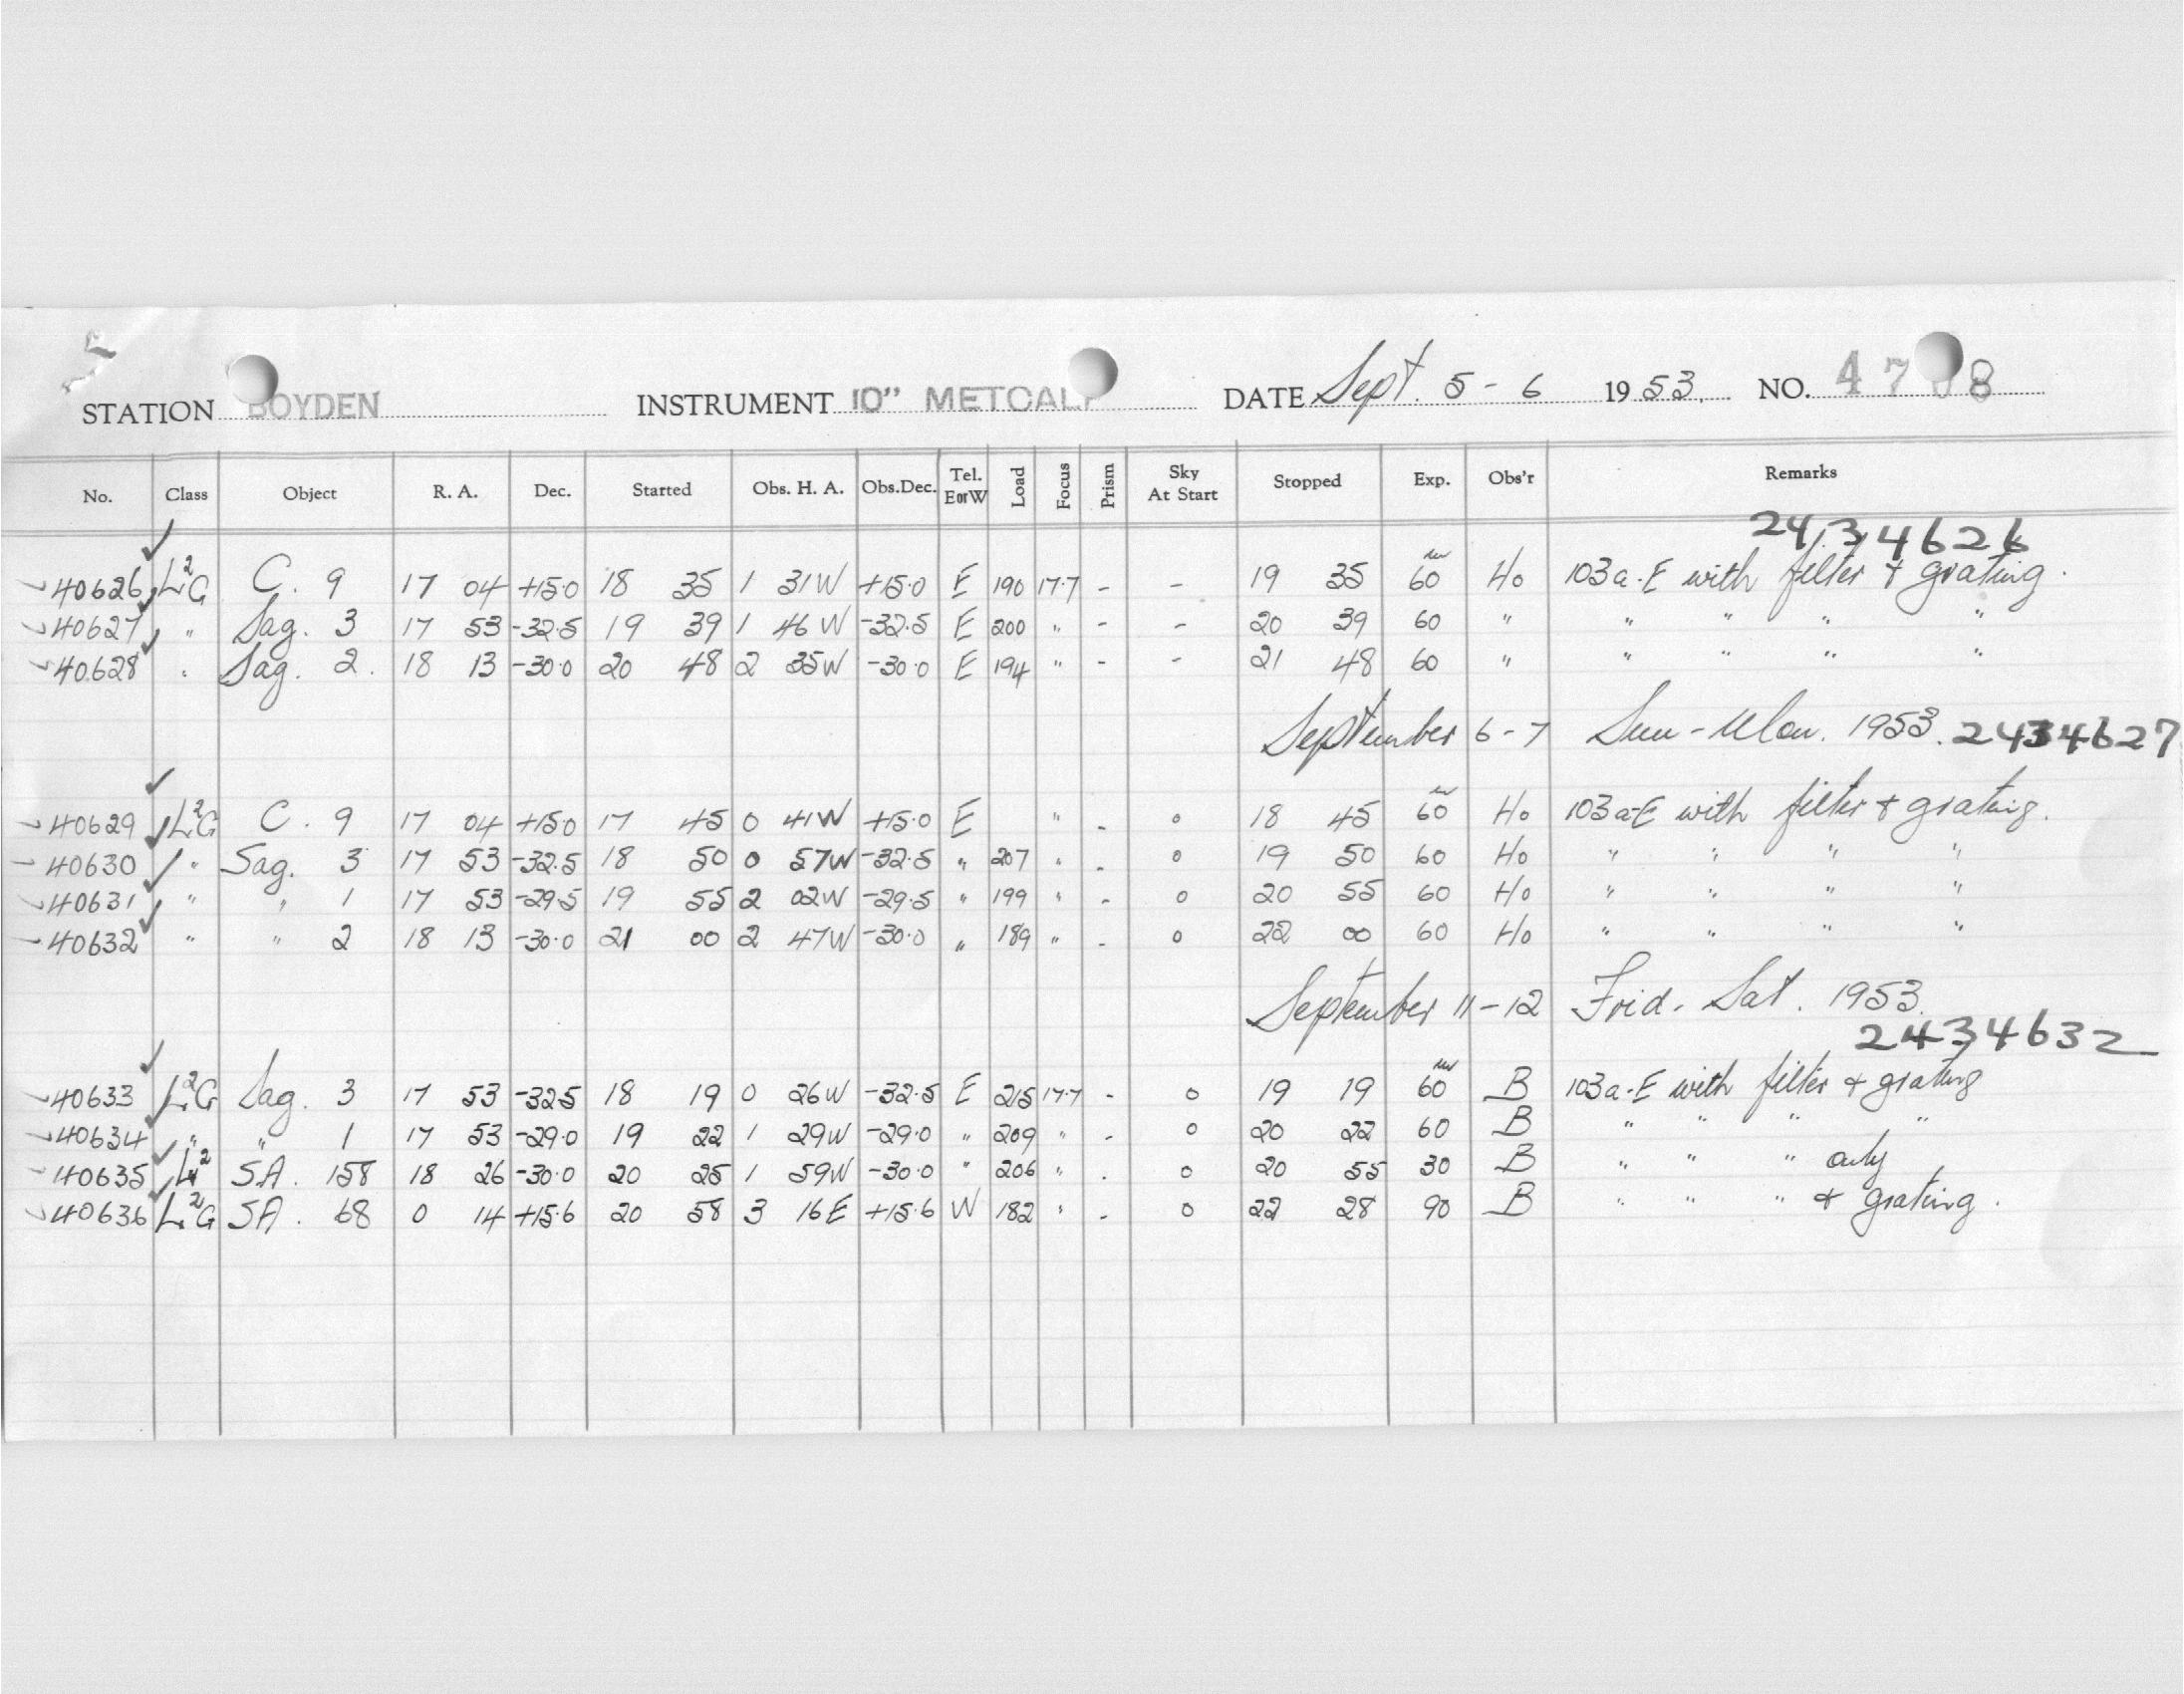 STATION BOYDEN INSTRUMENT 10" METCALF DATE Sept. 5 - 6 1953. NO. 4708
No. Class Object R. A. Dec. Started Obs. H. A. Obs.Dec. Tel. E or W Load Focus Prism Sky At Start Stopped Exp. Obs'r Remarks
2434626
40626 L²G C. 9 17 04 +15.0 18 35 1 31W +15.0 E 190 17.7 - - 19 35 60 m Ho 103a-E with filter + grating.
40627 " Sag. 3 17 53 -32.5 19 39 1 46W -32.5 E 200 " - - 20 39 60 " " " " "
40628 " Sag. 2. 18 13 -30.0 20 48 2 35W -30.0 E 194 " - - 21 48 60 " " " " "
September 6-7 Sun-Mon. 1953. 2434627
40629 L²G C. 9 17 04 +15.0 17 45 0 41W +15.0 E " - 0 18 45 60 m Ho 103a-E with filter + grating.
40630 " Sag. 3 17 53 -32.5 18 50 0 57W -32.5 " 207 " - 0 19 50 60 Ho " " " "
40631 " " 1 17 53 -29.5 19 55 2 02W -29.5 " 199 " - 0 20 55 60 Ho " " " "
40632 " " 2 18 13 -30.0 21 00 2 47W -30.0 " 189 " - 0 22 00 60 Ho " " " "
September 11-12 Frid. Sat. 1953.
2434632
40633 L²G Sag. 3 17 53 -32.5 18 19 0 26W -32.5 E 215 17.7 - 0 19 19 60 m B 103a-E with filter + grating
40634 " " 1 17 53 -29.0 19 22 1 29W -29.0 " 209 " - 0 20 22 60 B " " "
40635 S.A. 158 18 26 -30.0 20 25 1 59W -30.0 " 206 " . 0 20 55 30 B " " " only
40636 L²G SA. 68 0 14 +15.6 20 58 3 16E +15.6 W 182 " - 0 22 28 90 B " " " + grating.